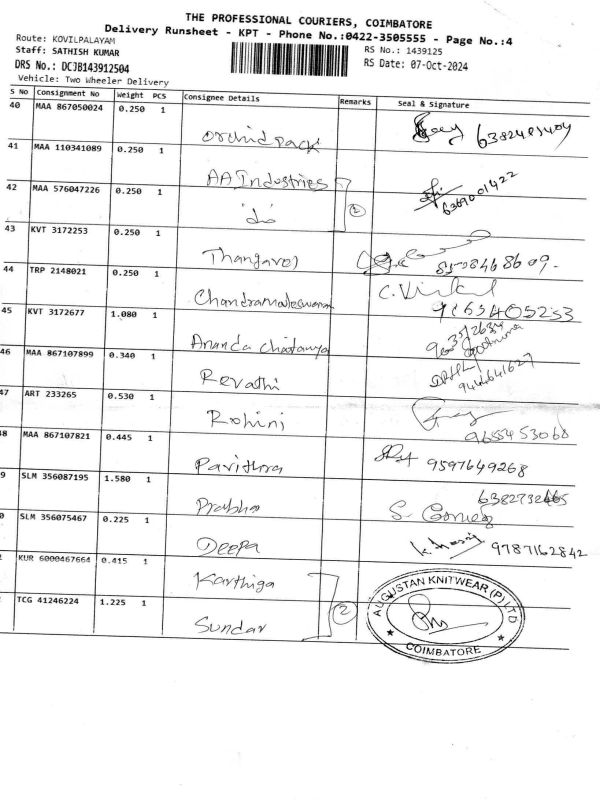 THE PROFESSIONAL COURIERS, COIMBATORE
Delivery Runsheet - KPT - Phone No.:0422-3505555 - Page No.:4
Route: KOVILPALAYAM
Staff: SATHISH KUMAR
RS No.: 1439125
DRS No.: DCJB143912504
RS Date: 07-Oct-2024
Vehicle: Two Wheeler Delivery
S No Consignment No Weight PCS Consignee Details Remarks Seal & Signature
40 MAA 867050024 0.250 1
Orchid pack
41 MAA 110341089 0.250 1
AA Industries
42 MAA 576047226 0.250 1
6369001422
2
43 KVT 3172253 0.250 1
Thangavel
44 TRP 2148021 0.250 1
Chandramaleswaran C. Vimal
45 KVT 3172677 1.080 1
Ananda Chaitanya
46 MAA 867107899 0.340 1
Revathi
9444641627
47 ART 233265 0.530 1
Rohini
9655453068
48 MAA 867107821 0.445 1
Pavithra 9597649268
9 SLM 356087195 1.580 1
Prabha
0 SLM 356075467 0.225 1
Deepa 9787162842
KUR 6000467664 0.415 1
Karthiga
2
TCG 41246224 1.225 1
Sundar
AUGUSTAN KNITWEAR (P) LTD
COIMBATORE